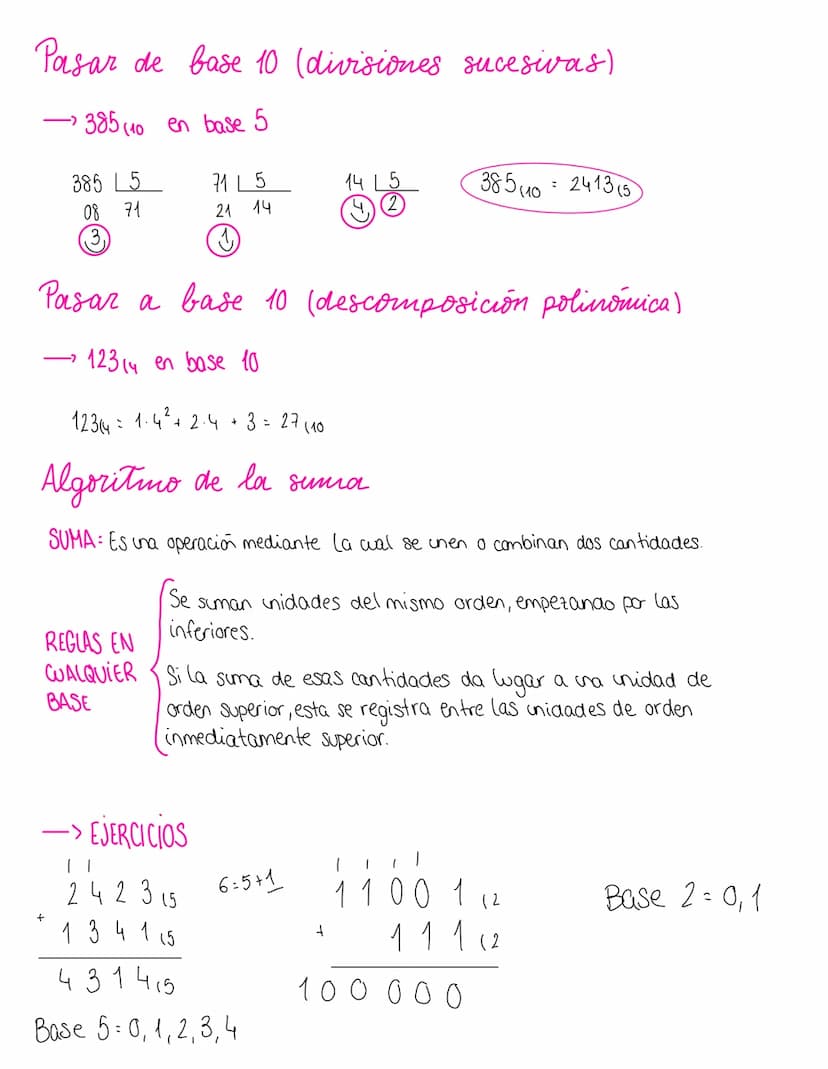 Pasar de base 10 (divisiones sucesivas)
→ 385(10 en base 5
385 | 5
08 71
3
71 | 5
21 14
1
14 | 5
4 2
385(10 = 2413(5
Pasar a base 10 (descomposición polinómica)
→ 123(4 en base 10
123(4 = 1·4² + 2·4 + 3 = 27(10
Algoritmo de la suma
SUMA: Es una operación mediante la cual se unen o combinan dos cantidades.
REGLAS EN
CUALQUIER
BASE
Se suman unidades del mismo orden, empezando por las
inferiores.
Si la suma de esas cantidades da lugar a una unidad de
orden superior, esta se registra entre las unidades de orden
inmediatamente superior.
→ EJERCICIOS
1 1
2 4 2 3(5
+ 1 3 4 1(5
4 3 1 4(5
6=5+1
Base 5=0,1,2,3,4
1 1 1 1
1 1 0 0 1(2
+ 1 1 1(2
1 0 0 0 0 0
Base 2=0,1